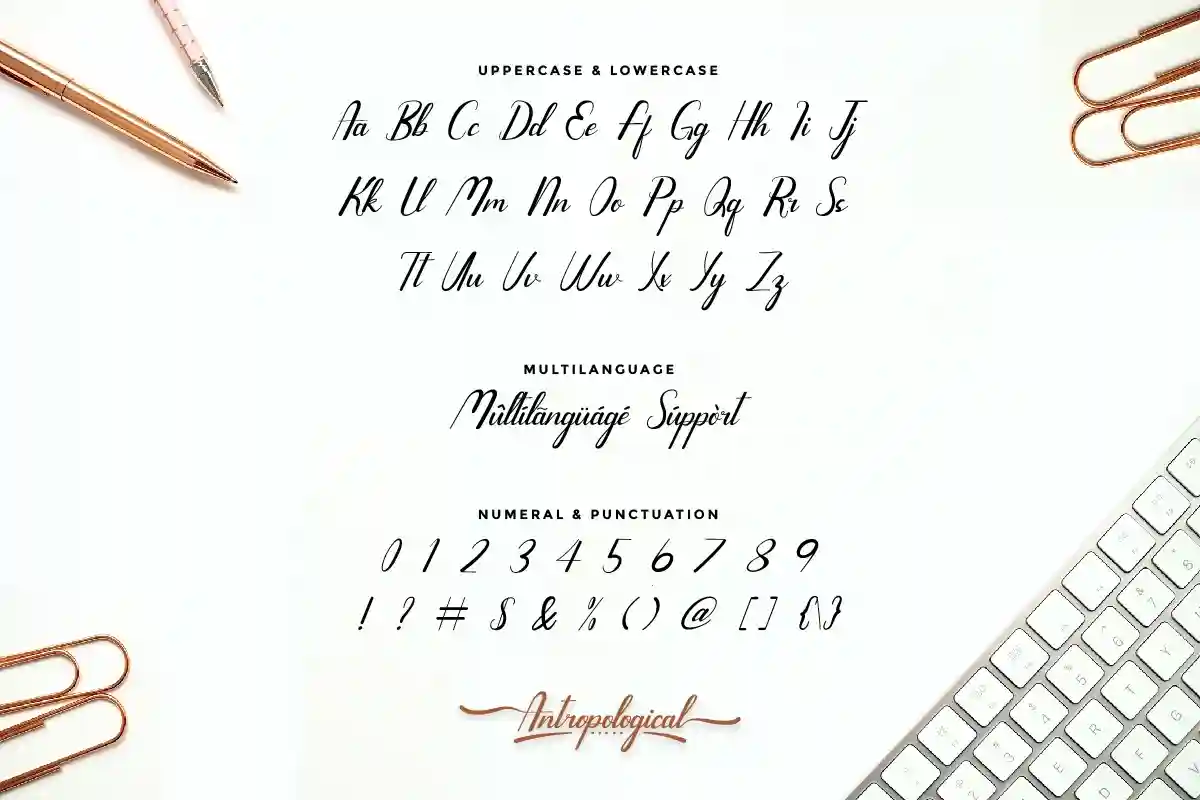 UPPERCASE & LOWERCASE
Aa Bb Cc Dd Ee Ff Gg Hh Ii Jj
Kk Ll Mm Nn Oo Pp Qq Rr Ss
Tt Uu Vv Ww Xx Yy Zz
MULTILANGUAGE
Mûltilãngüágé Súppòrt
NUMERAL & PUNCTUATION
0 1 2 3 4 5 6 7 8 9
! ? # $ & % ( ) @ [ ] { \ }
Antropological
8
7
6 Y
5 T G
4 R F
3 E D
2